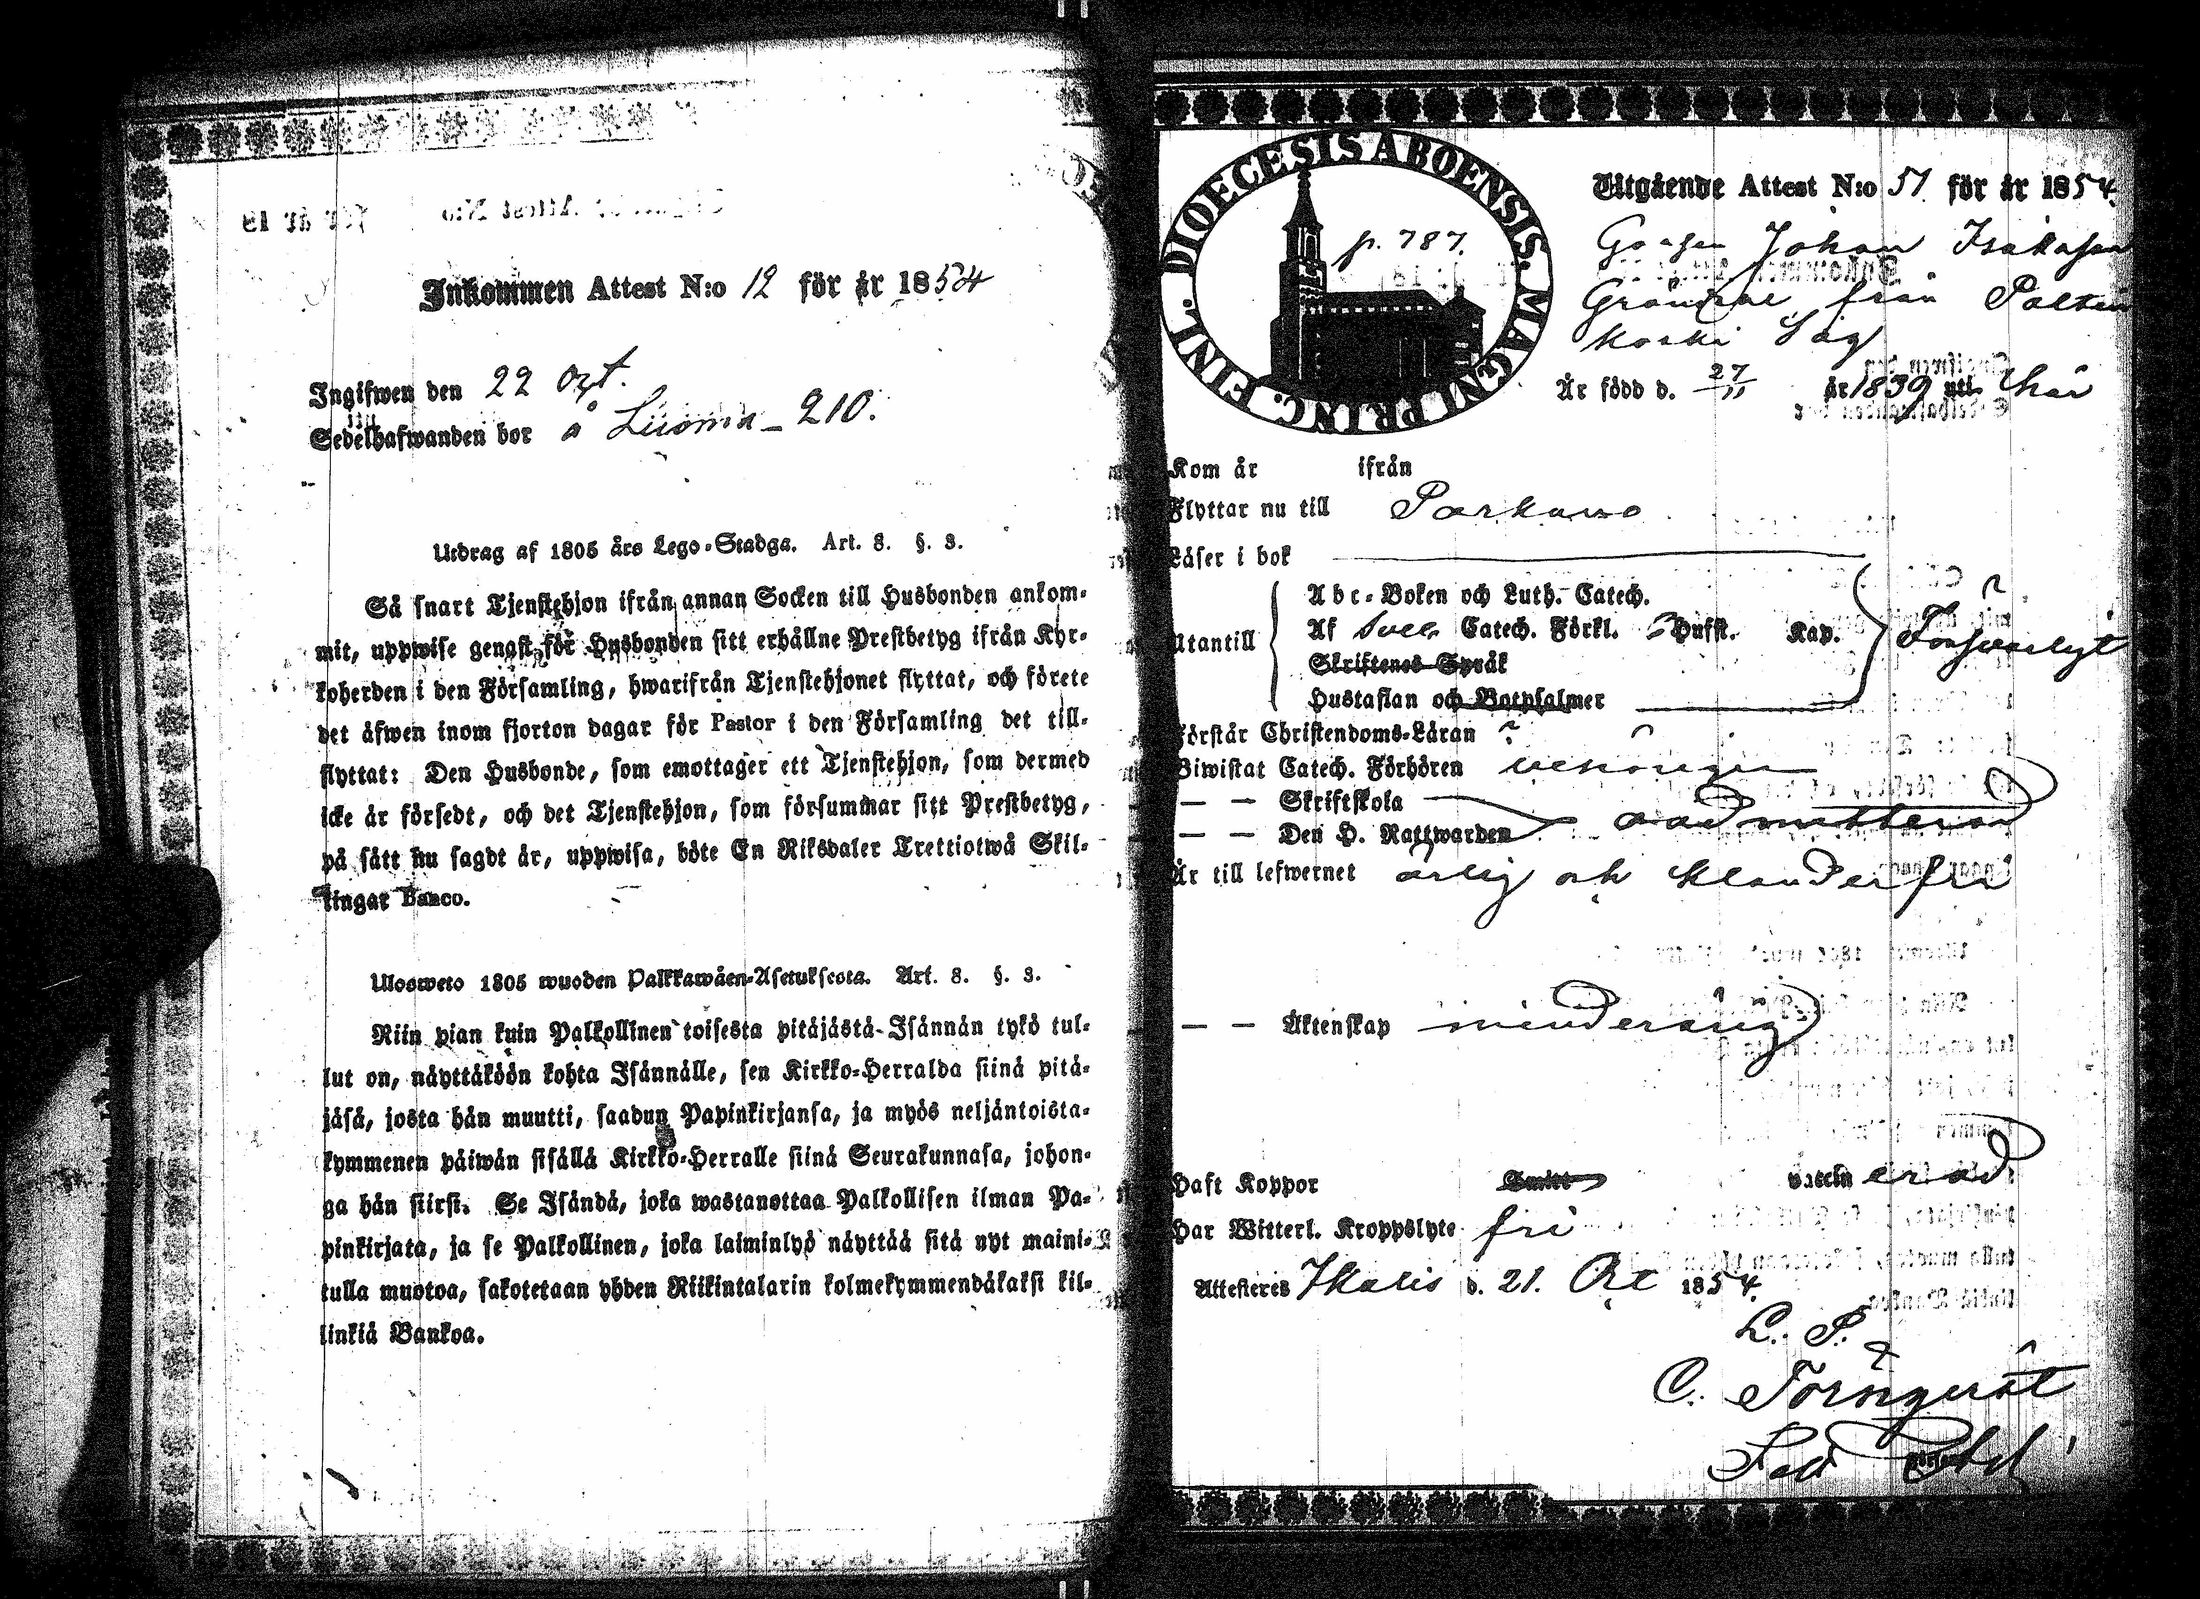 Inkommen Attest N:o 12 för år 1854
Ingifwen den 22 Oct.
till
Sedelhafwanden bor å Luoma - 210.
Utdrag af 1805 års Lego-Stadga. Art. 8. §. 3.
Så snart Tjenstehjon ifrån annan Socken till Husbonden ankom-
mit, uppwise genast för Husbonden sitt erhållne Prestbetyg ifrån Kyr-
koherden i den Församling, hwarifrån Tjenstehjonet flyttat, och förete
det äfwen inom fjorton dagar för Pastor i den Församling det till-
flyttat: Den Husbonde, som emottager ett Tjenstehjon, som dermed
icke är försedt, och det Tjenstehjon, som försummar sitt Prestbetyg,
på sätt nu sagdt är, uppwisa, böte En Riksdaler Trettiotwå Skil-
lingar Banco.
Ulosweto 1805 wuoden Palkkawäen-Asetuksesta. Art. 8. §. 3.
Niin pian kuin Palkollinen toisesta pitäjästä Isännän tykö tul-
lut on, näyttäköön kohta Isännälle, sen Kirkko-Herralda siinä pitä-
jäsä, josta hän muutti, saadun Papinkirjansa, ja myös neljäntoista-
kymmenen päiwän sisällä Kirkko-Herralle siinä Seurakunnasa, johon-
ga hän siirsi. Se Isändä, joka wastanottaa Palkollisen ilman Pa-
pinkirjata, ja se Palkollinen, joka laiminlyö näyttää sitä nyt maini-
tulla muotoa, sakotetaan yhden Riikintalarin kolmekymmendäkaksi kil-
linkiä Bankoa.
DIOECESIS ABOENSIS. MAGNI PRINC. FINL.
p. 787.
Utgående Attest N:o 51 för år 1854.
Gossen Johan Isaksson
Gröndal från Poltin
koski Såg
Är född d. 27/11 år 1839 uti här
Kom år ifrån
Flyttar nu till Parkano
Läser i bok
Utantill
Abc-Boken och Luth. Catech.
Af Sveb. Catech. Förkl. Hufst. Kap.
Skriftenes Språk
Hustaflan och Botpsalmer
Försvarligt
Förstår Christendoms-Läran
Biwistat Catech. Förhören
— — Skriftskola
— — Den H. Nattwarden oadmitterad
Är till lefwernet ärlig och klanderfri
— — Äktenskap minderårig
Haft Koppor Smitt vaccinerad
Har Witterl. Kroppslyte fri
Attesteres Ikalis d. 21. Oct 1854.
L. P.
C. Törnqvist